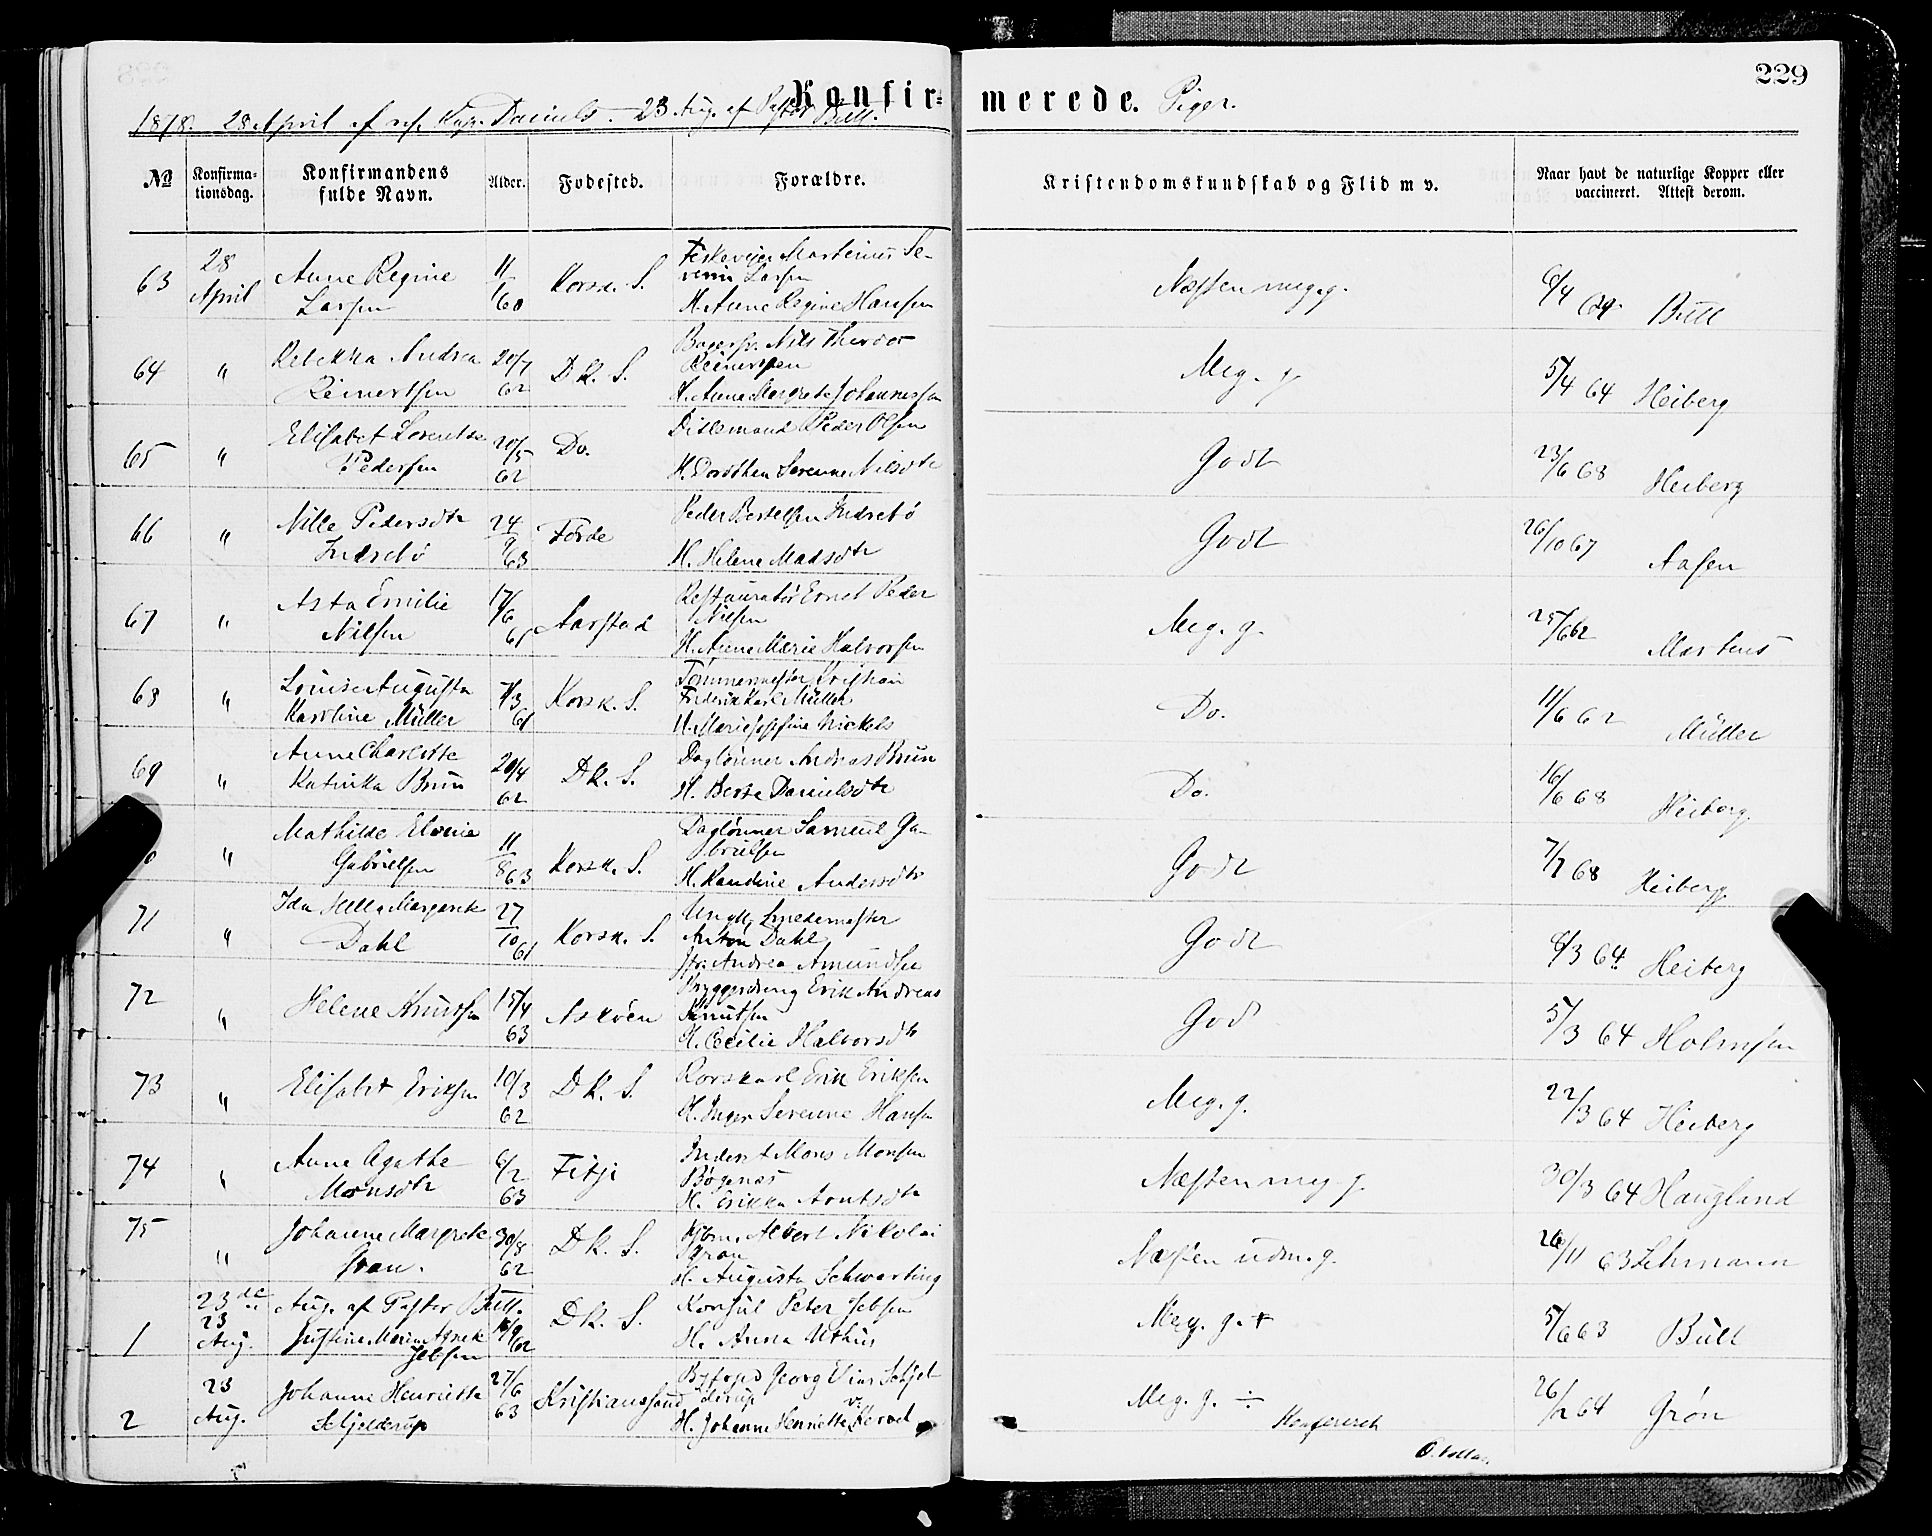 229
Konfirmerede. Piger.
1878. 28 April af res. Kap. Daniels. 23 Aug. af Pastor Bull.
№ Konfirmationsdag. Konfirmandens fulde Navn. Alder. Fødested. Forældre. Kristendomskundskab og Flid m v. Naar havt de naturlige Kopper eller vaccineret. Attest derom.
63 28 April Anne Regine Larsen 11/1 60 Korsk. S. Martinus Severin Larsen H. Anne Regine Hansen Næsten meg. g. 6/4 Bull
64 " Rebekka Andrea Reinertsen 20/7 62 D K. S. Nils Theodor Reinertsen H. Anne Margrete Johannessen Meg. g. 5/4 64 Heiberg
65 " Elisabet Lorentse Pedersen 20/5 62 Do. Peder Olsen H. Dorothea Serenne Nilsdtr Godt 23/6 68 Heiberg
66 " Nille Pedersdtr Indrebö 24/9 63 Förde Peder Bertelsen Indrebö H. Helene Madsdtr Godt 26/10 67 Aasen
67 " Asta Emilie Nilsen 17/6 61 Aarstad Restauratör Ernst Peder Nilsen H. Anne Marie Halvorsen Meg. g. 25/6 62 Martens
68 " Louise Augusta Karoline Müller 7/3 61 Korsk. S. Tømmermester Kristian Frederik Karl Müller H. Marie Josefine Nickels Do. 11/6 62 Müller
69 " Anne Charlotte Katinka Brun 20/4 62 D K. S. Daglönner Andreas Brun H. Berte Danielsdtr Do. 16/6 68 Heiberg
" Mathilde Elvine Gabrielsen 11/8 63 Korsk. S. Daglönner Samuel Gabrielsen H. Randine Andersdtr Godt 7/7 68 Heiberg
71 " Ida Hella Margrete Dahl 27/10 61 Korsk. S. Smedemester Anton Dahl Andrea Amundsen Godt 8/3 64 Heiberg
72 " Helene Knutsen 15/4 63 Asköen Bryggedreng Erik Andreas Knutsen H. Cecilie Halvorsdtr God 5/3 64 Holmsen
73 " Elisabet Eriksen 10/3 62 D K. S. Rorskarl Erik Eriksen H. Inger Serenne Hansen Meg. g. 22/3 64 Heiberg
74 " Anne Agathe Monsdtr 6/2 63 Fitje Inderst Mons Monsen Bögenæs H. Erikka Arntsdtr Næsten meg. g. 30/3 64 Haugland
75 " Johanne Margrete Gran. 30/8 62 D K. S. Kjöbm. Albert Nikolai Gran H. Augusta Schwarting Næsten udm. g. 26/11 63 Lehmann
23de Aug. af Pastor Bull.
1 23 Aug. Justine Marie Agnete Jebsen 62 D K. S. Konsul Peter Jebsen H. Anna Uthus Meg. g. + 5/6 63 Bull
2 23 Aug. Johanne Henriette Schjelderup 27/6 63 Kristianssand Byfogd Georg Elias Schjelderup H. Johanne Henriette v. Meg. g. ÷ 26/2 64 Grön
Konfereret